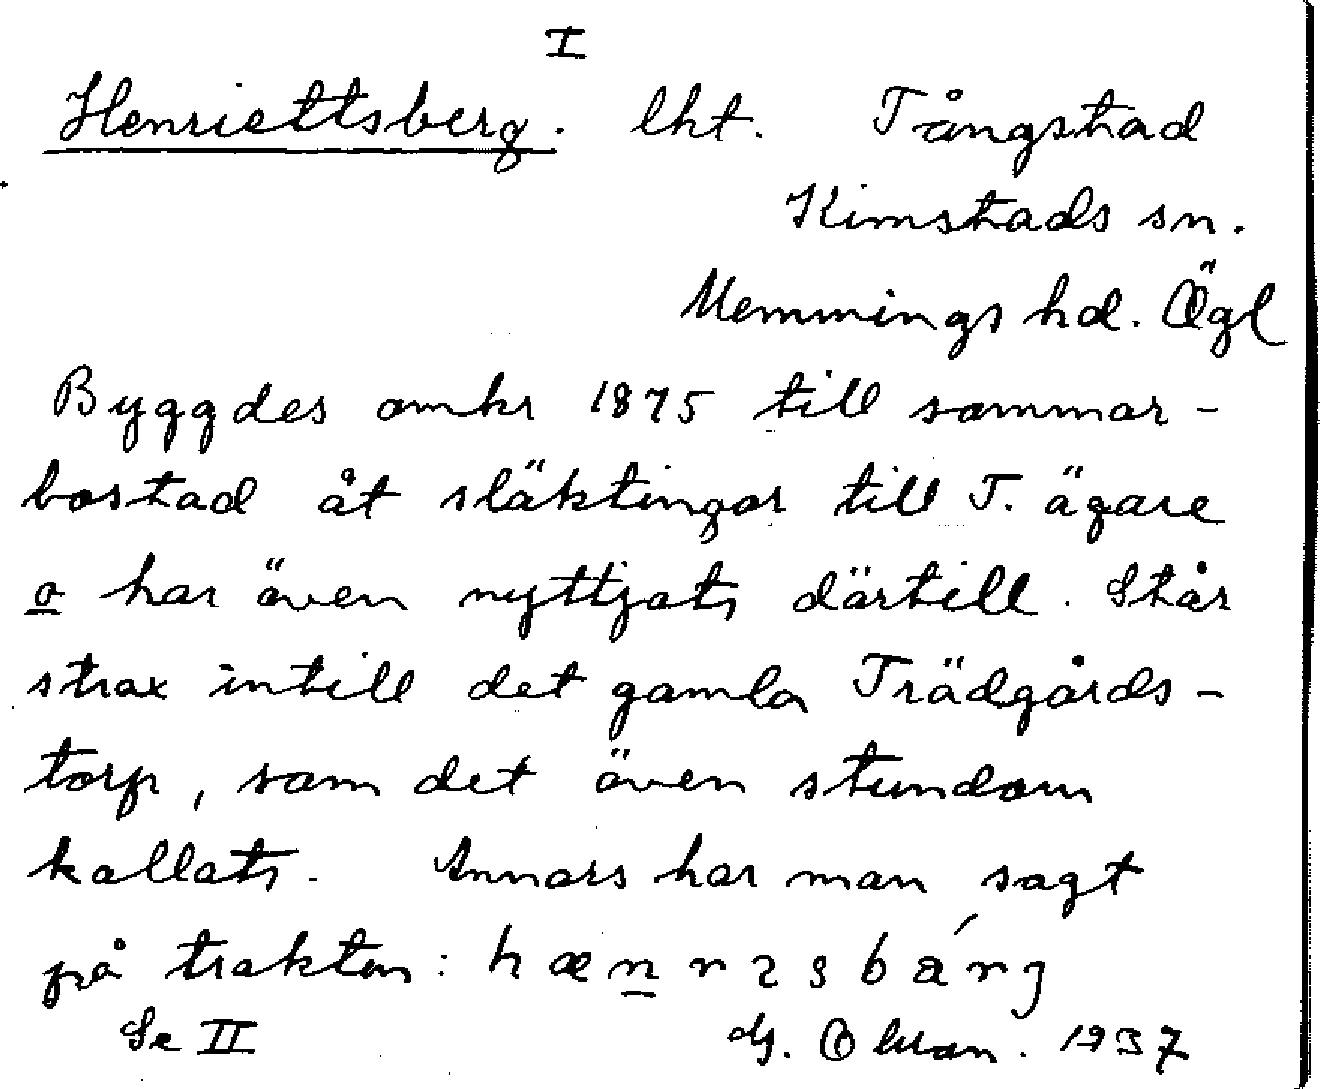 I
Henriettsberg. lht. Tångstad
Kimstads sn.
Memmings hd. Ögl
Byggdes omkr 1875 till sommar-
bostad åt släktingar till T. ägare
o har även nyttjats därtill. Står
strax intill det gamla Trädgårds-
torp, som det även stundom
kallats. Annars har man sagt
på trakten:
Se II 1937